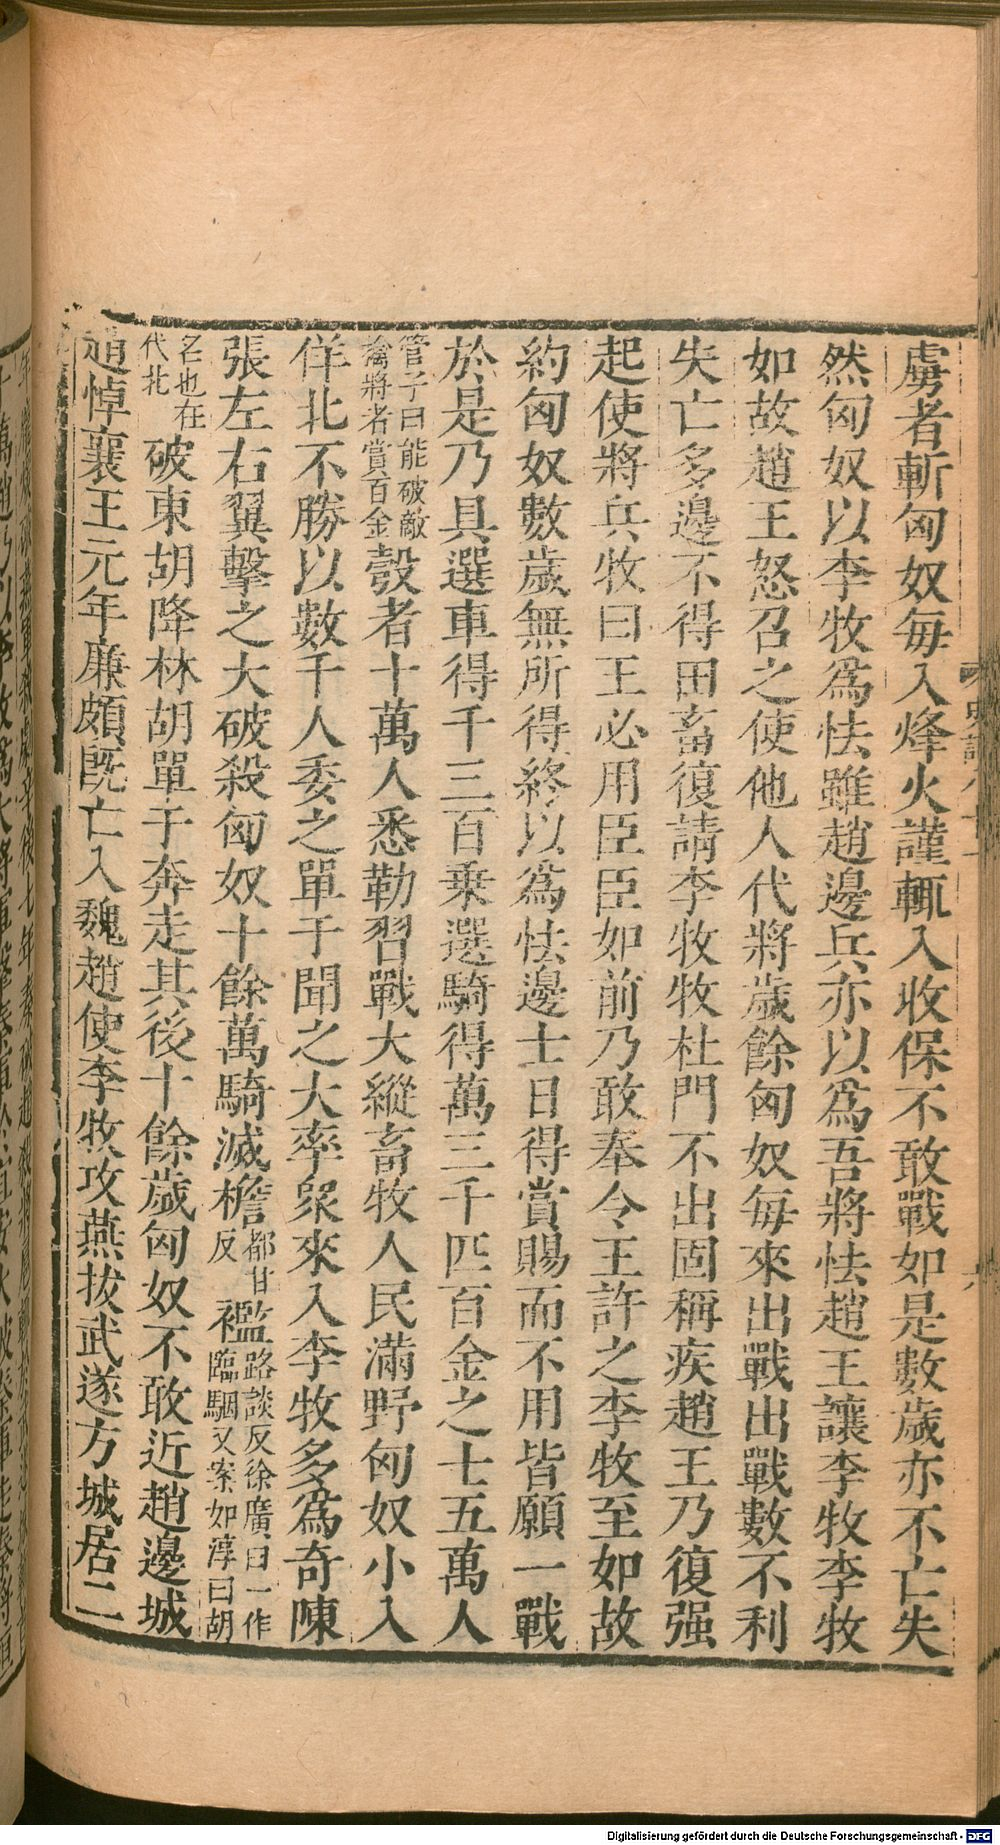 虜者斬匈奴每入烽火謹輒入收保不敢戰如是數歲亦不亡失
然匈奴以李牧爲怯雖趙邊兵亦以爲吾將怯趙王讓李牧李牧
如故趙王怒召之使他人代將歲餘匈奴每來出戰出戰數不利
失亡多邊不得田畜復請李牧牧杜門不出固稱疾趙王乃復强
起使將兵牧曰王必用臣臣如前乃敢奉令王許之李牧至如故
約匈奴數歲無所得終以爲怯邊士日得賞賜而不用皆願一戰
於是乃具選車得千三百乗選騎得萬三千匹百金之士五萬人
管子曰能破敵擒將者賞百金彀者十萬人悉勒習戰大縱畜牧人民滿野匈奴小入
佯北不勝以數千人委之單于聞之大率眾來入李牧多爲奇陳
張左右翼擊之大破殺匈奴十餘萬騎滅襜都甘反襤路談反徐廣曰一作臨駰又案如淳曰胡
名也在代北破東胡降林胡單于奔走其後十餘歲匈奴不敢近趙邊城
趙悼襄王元年廉頗旣亡入魏趙使李牧攻燕拔武遂方城居二
Digitalisierung gefördert durch die Deutsche Forschungsgemeinschaft - DFG